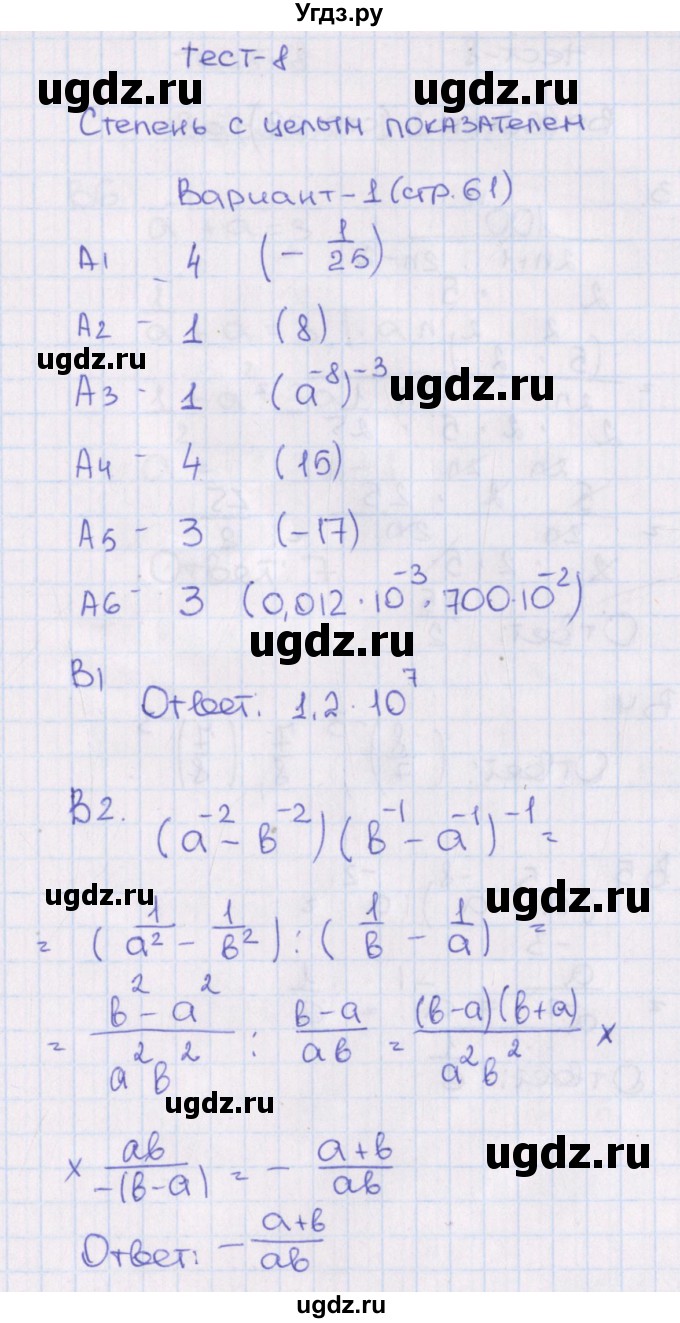 Угдз.ру
Тест-8
ugdz.ru ugdz.ru
Степень с целым показателем
Вариант-1 (стр. 61)
А1 - 4 (- 1/25)
А2 - 1 (8)
ugdz.ru
А3 - 1 (a⁻⁸)⁻³ ugdz.ru
А4 - 4 (15)
А5 - 3 (-17)
А6 - 3 (0,012 · 10⁻³ · 700 · 10⁻²)
ugdz.ru
В1
Ответ. 1,2 · 10⁷
В2. (a⁻² - в⁻²)(в⁻¹ - a⁻¹)⁻¹ =
ugdz.ru ugdz.ru
= (1/a² - 1/в²) : (1/в - 1/a) =
= (в² - a²)/(a²в²) : (в - a)/(aв) = (в-a)(в+a)/(a²в²) ×
ugdz.ru
× aв/(-(в-a)) = - (a+в)/(aв)
ugdz.ru
Ответ: - (a+в)/(aв)
ugdz.ru